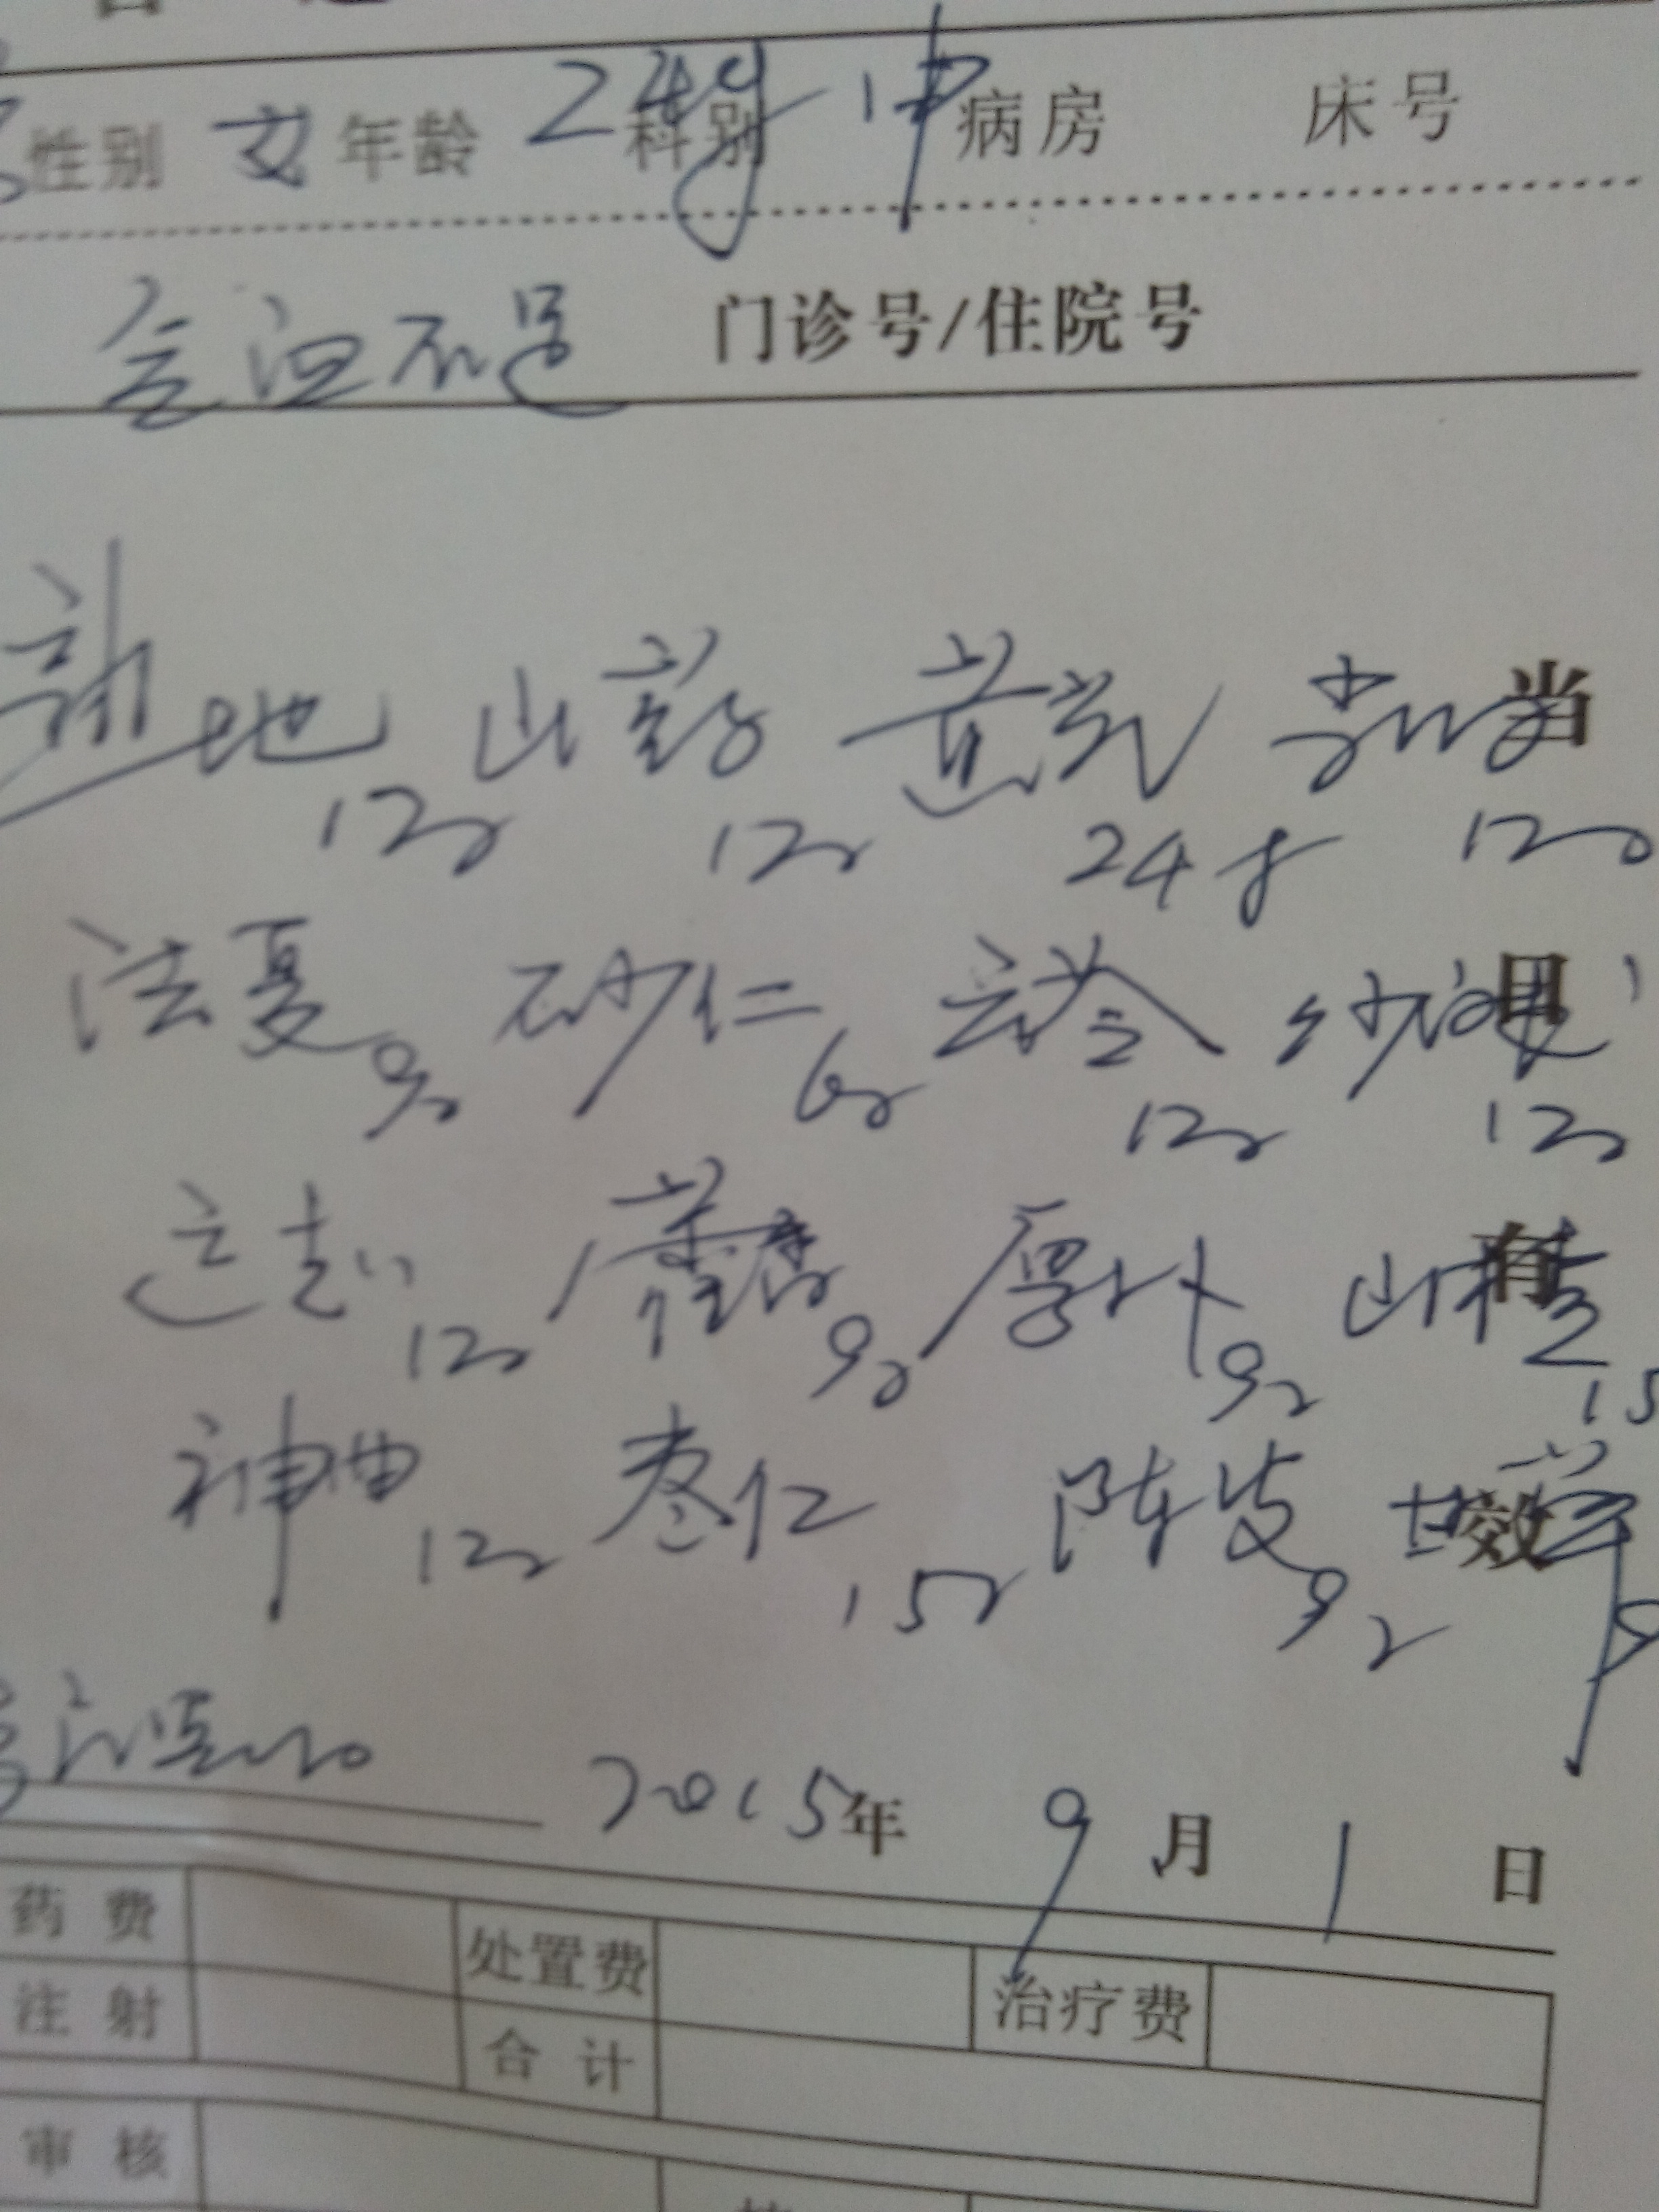 性别 女 年龄 24岁 科别 中 病房 床号
气血不足 门诊号/住院号
熟地 12g 山药 12g 黄芪 24g 12g 当
法夏 9g 砂仁 6g 云苓 12g 12g 日
远志 12g 藿香 9g 厚朴 9g 山楂 15 有
神曲 12g 枣仁 15g 陈皮 9g 甘草 效
2015年 9月 1日
药费 处置费 治疗费
注射 合计
审核